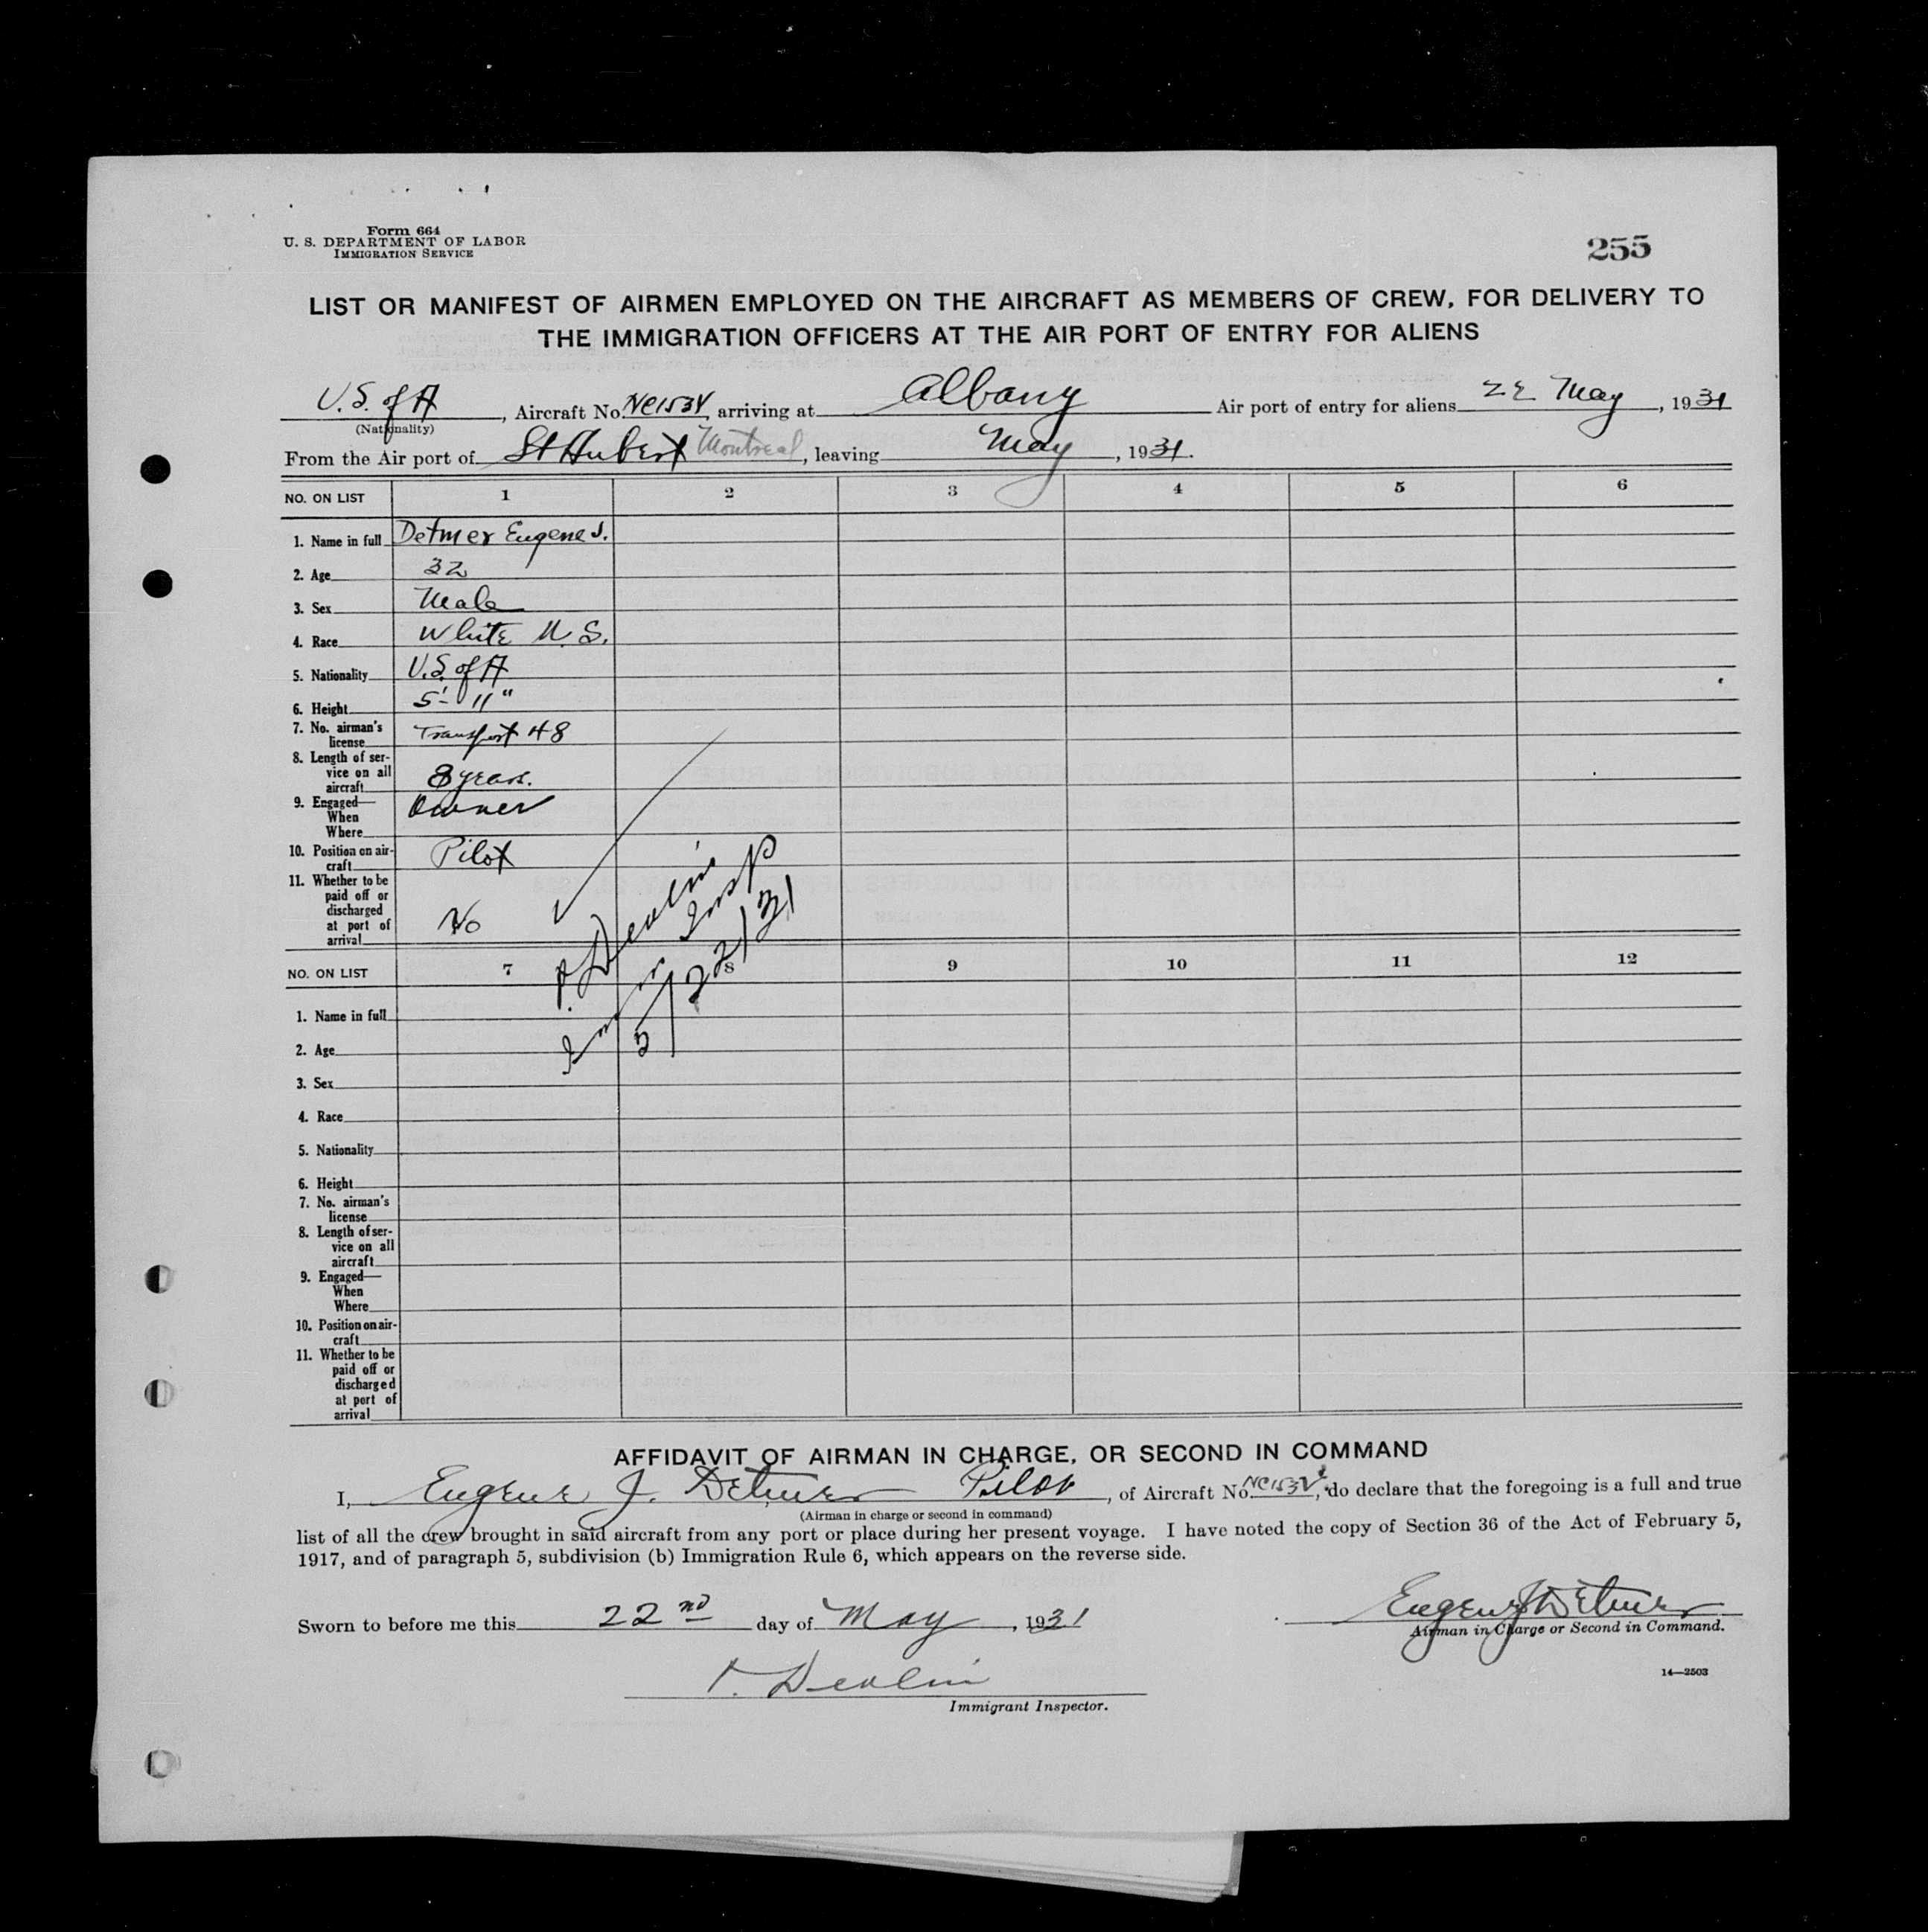 Form 664
U. S. DEPARTMENT OF LABOR
IMMIGRATION SERVICE
255
LIST OR MANIFEST OF AIRMEN EMPLOYED ON THE AIRCRAFT AS MEMBERS OF CREW, FOR DELIVERY TO
THE IMMIGRATION OFFICERS AT THE AIR PORT OF ENTRY FOR ALIENS
U.S. of A, Aircraft No. NC153V, arriving at Albany Air port of entry for aliens 22 May, 1931
(Nationality)
From the Air port of St Hubert Montreal, leaving May, 1931.
NO. ON LIST 1 2 3 4 5 6
1. Name in full Detmer Eugene J.
2. Age 32
3. Sex Male
4. Race White U.S.
5. Nationality U.S. of A
6. Height 5'-11"
7. No. airman's
license Transport 48
8. Length of ser-
vice on all
aircraft 8 years.
9. Engaged— Owner
When
Where
10. Position on air- Pilot
craft
11. Whether to be
paid off or
discharged
at port of No
arrival
Devlin
Insp
5/22/31
NO. ON LIST 7 8 9 10 11 12
1. Name in full
2. Age
3. Sex
4. Race
5. Nationality
6. Height
7. No. airman's
license
8. Length of ser-
vice on all
aircraft
9. Engaged—
When
Where
10. Position on air-
craft
11. Whether to be
paid off or
discharged
at port of
arrival
AFFIDAVIT OF AIRMAN IN CHARGE, OR SECOND IN COMMAND
I, Eugene J. Detmer Pilot, of Aircraft No. NC153V, do declare that the foregoing is a full and true
(Airman in charge or second in command)
list of all the crew brought in said aircraft from any port or place during her present voyage. I have noted the copy of Section 36 of the Act of February 5,
1917, and of paragraph 5, subdivision (b) Immigration Rule 6, which appears on the reverse side.
Sworn to before me this 22nd day of May, 1931
Eugene J Detmer
Airman in Charge or Second in Command.
Devlin
14—2503
Immigrant Inspector.